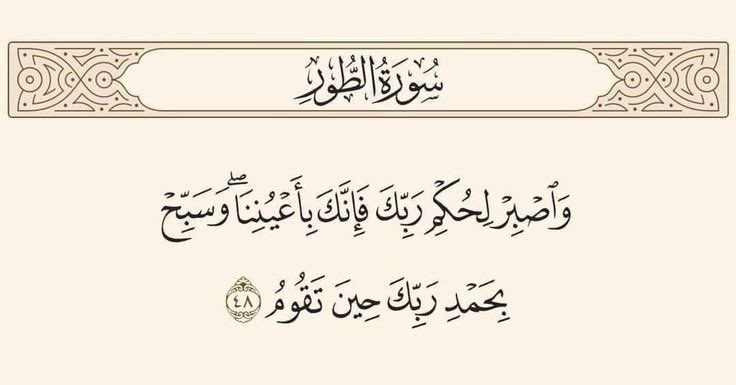 سُورَةُ الطُّورِ
وَٱصۡبِرۡ لِحُكۡمِ رَبِّكَ فَإِنَّكَ بِأَعۡيُنِنَاۖ وَسَبِّحۡ
بِحَمۡدِ رَبِّكَ حِينَ تَقُومُ ٤٨